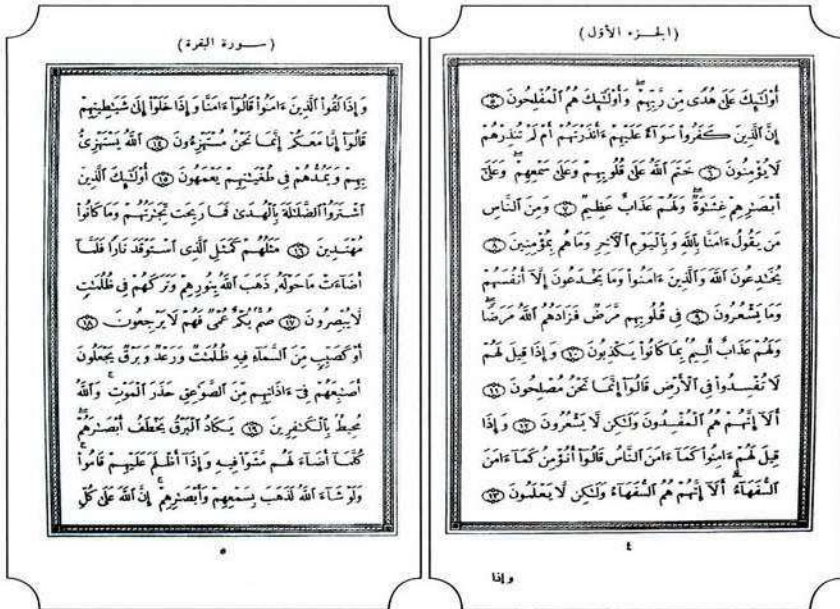 (الجزء الأول)
أُوْلَـٰٓئِكَ عَلَىٰ هُدًى مِّن رَّبِّهِمْۖ وَأُوْلَـٰٓئِكَ هُمُ ٱلْمُفْلِحُونَ ٥
إِنَّ ٱلَّذِينَ كَفَرُواْ سَوَآءٌ عَلَيْهِمْ ءَأَنذَرْتَهُمْ أَمْ لَمْ تُنذِرْهُمْ
لَا يُؤْمِنُونَ ٦ خَتَمَ ٱللَّهُ عَلَىٰ قُلُوبِهِمْ وَعَلَىٰ سَمْعِهِمْۖ وَعَلَىٰٓ
أَبْصَـٰرِهِمْ غِشَـٰوَةٌۖ وَلَهُمْ عَذَابٌ عَظِيمٌ ٧ وَمِنَ ٱلنَّاسِ
مَن يَقُولُ ءَامَنَّا بِٱللَّهِ وَبِٱلْيَوْمِ ٱلْـَٔاخِرِ وَمَا هُم بِمُؤْمِنِينَ ٨
يُخَـٰدِعُونَ ٱللَّهَ وَٱلَّذِينَ ءَامَنُواْ وَمَا يَخْدَعُونَ إِلَّآ أَنفُسَهُمْ
وَمَا يَشْعُرُونَ ٩ فِى قُلُوبِهِم مَّرَضٌ فَزَادَهُمُ ٱللَّهُ مَرَضًاۖ
وَلَهُمْ عَذَابٌ أَلِيمٌۢ بِمَا كَانُواْ يَكْذِبُونَ ١٠ وَإِذَا قِيلَ لَهُمْ
لَا تُفْسِدُواْ فِى ٱلْأَرْضِ قَالُوٓاْ إِنَّمَا نَحْنُ مُصْلِحُونَ ١١
أَلَآ إِنَّهُمْ هُمُ ٱلْمُفْسِدُونَ وَلَـٰكِن لَّا يَشْعُرُونَ ١٢ وَإِذَا
قِيلَ لَهُمْ ءَامِنُواْ كَمَآ ءَامَنَ ٱلنَّاسُ قَالُوٓاْ أَنُؤْمِنُ كَمَآ ءَامَنَ
ٱلسُّفَهَآءُۗ أَلَآ إِنَّهُمْ هُمُ ٱلسُّفَهَآءُ وَلَـٰكِن لَّا يَعْلَمُونَ ١٣
٤
وإذا
(سورة البقرة)
وَإِذَا لَقُواْ ٱلَّذِينَ ءَامَنُواْ قَالُوٓاْ ءَامَنَّا وَإِذَا خَلَوْاْ إِلَىٰ شَيَـٰطِينِهِمْ
قَالُوٓاْ إِنَّا مَعَكُمْ إِنَّمَا نَحْنُ مُسْتَهْزِءُونَ ١٤ ٱللَّهُ يَسْتَهْزِئُ
بِهِمْ وَيَمُدُّهُمْ فِى طُغْيَـٰنِهِمْ يَعْمَهُونَ ١٥ أُوْلَـٰٓئِكَ ٱلَّذِينَ
ٱشْتَرَوُاْ ٱلضَّلَـٰلَةَ بِٱلْهُدَىٰ فَمَا رَبِحَت تِّجَـٰرَتُهُمْ وَمَا كَانُواْ
مُهْتَدِينَ ١٦ مَثَلُهُمْ كَمَثَلِ ٱلَّذِى ٱسْتَوْقَدَ نَارًا فَلَمَّآ
أَضَآءَتْ مَا حَوْلَهُۥ ذَهَبَ ٱللَّهُ بِنُورِهِمْ وَتَرَكَهُمْ فِى ظُلُمَـٰتٍ
لَّا يُبْصِرُونَ ١٧ صُمٌّۢ بُكْمٌ عُمْىٌ فَهُمْ لَا يَرْجِعُونَ ١٨
أَوْ كَصَيِّبٍ مِّنَ ٱلسَّمَآءِ فِيهِ ظُلُمَـٰتٌ وَرَعْدٌ وَبَرْقٌ يَجْعَلُونَ
أَصَـٰبِعَهُمْ فِىٓ ءَاذَانِهِم مِّنَ ٱلصَّوَٰعِقِ حَذَرَ ٱلْمَوْتِۚ وَٱللَّهُ
مُحِيطٌۢ بِٱلْكَـٰفِرِينَ ١٩ يَكَادُ ٱلْبَرْقُ يَخْطَفُ أَبْصَـٰرَهُمْۖ
كُلَّمَآ أَضَآءَ لَهُم مَّشَوْاْ فِيهِ وَإِذَآ أَظْلَمَ عَلَيْهِمْ قَامُواْۚ
وَلَوْ شَآءَ ٱللَّهُ لَذَهَبَ بِسَمْعِهِمْ وَأَبْصَـٰرِهِمْۚ إِنَّ ٱللَّهَ عَلَىٰ كُلِّ
٥